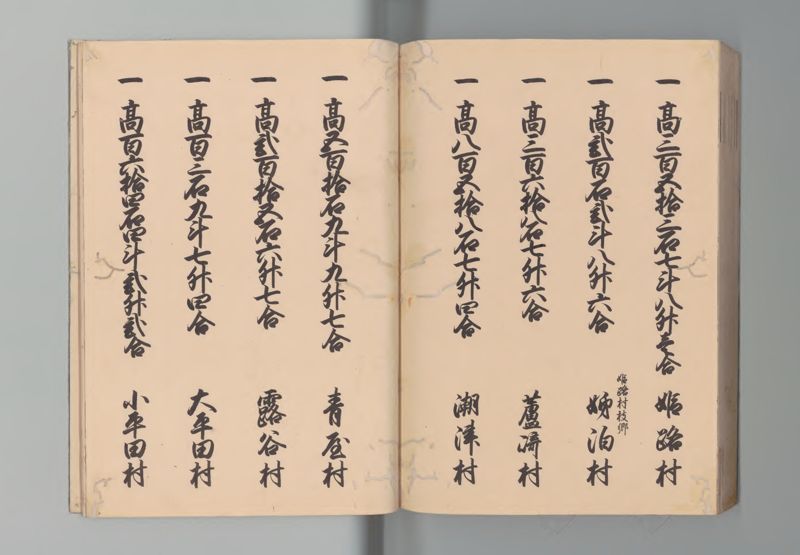 一高三百五拾三石七斗八升壱合 姫路村
一高弐百石弐斗八升六合 姫路村枝郷 姉泊村
一高三百六拾八石七升六合 蘆﨑村
一高八百五拾八石七升四合 潮津村
一高五百拾石九斗九升七合 青屋村
一高弐百拾五石六升七合 露谷村
一高百三石九斗七升四合 大平田村
一高百六拾四石四斗弐升弐合 小平田村